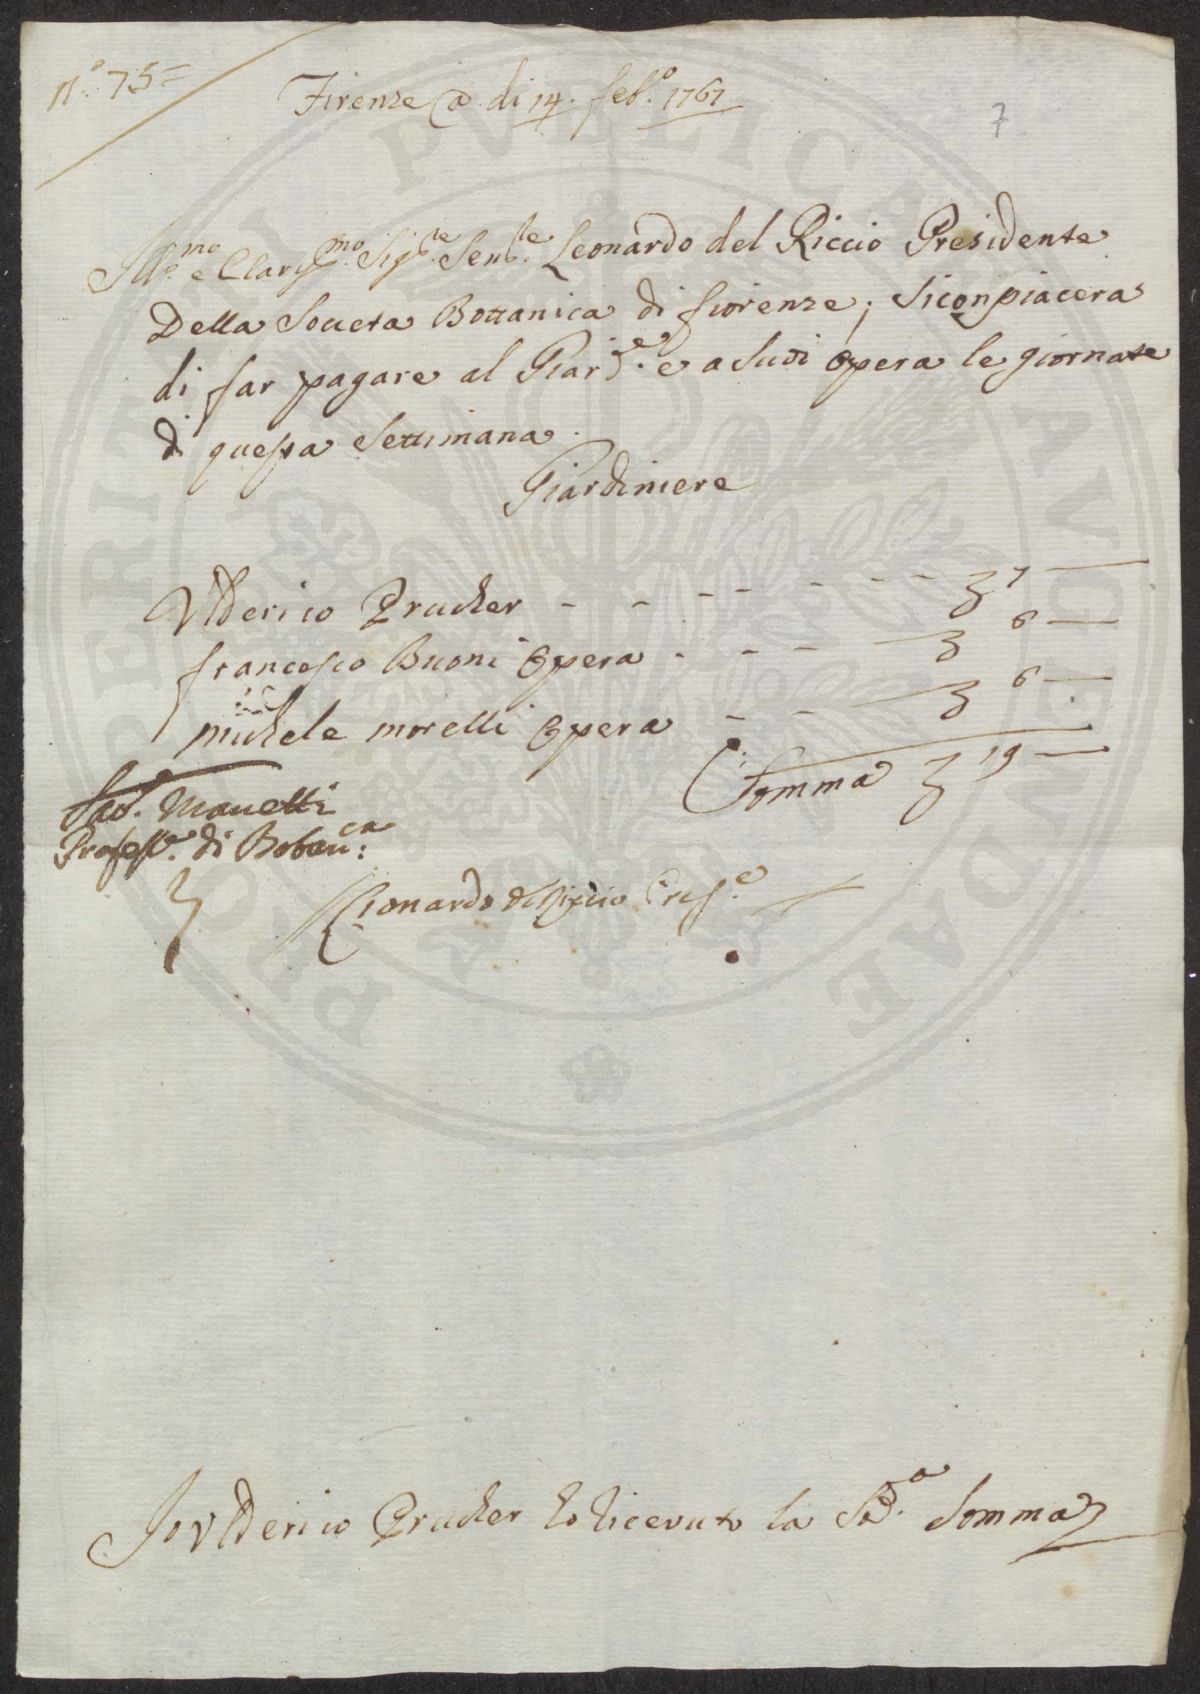 n.o 75=
Firenze a di 14. feb.o 1761
7
Ill.mo e Clariss.mo Sig.re Sen.re Leonardo del Riccio Presidente
Della Societa Bottanica di fiorenze; si conpiacera
di far pagare al Giar.e e a Suoi Opera le giornate
di questa Settimana.
Giardiniere
Vlderico Prucker - - - - - - - 7 —
francesco Buoni Opera - - - 6 —
michele morelli Opera - - 6 —
Somma 19 —
Sav. Manetti
Profess.e di Botan.ca:
Lionardo del Riccio Pres.e
Io Vlderico Prucker ho ricevuto la Sd.a Somma
PRO PERITATE PVBLICAE VOLVPTATI